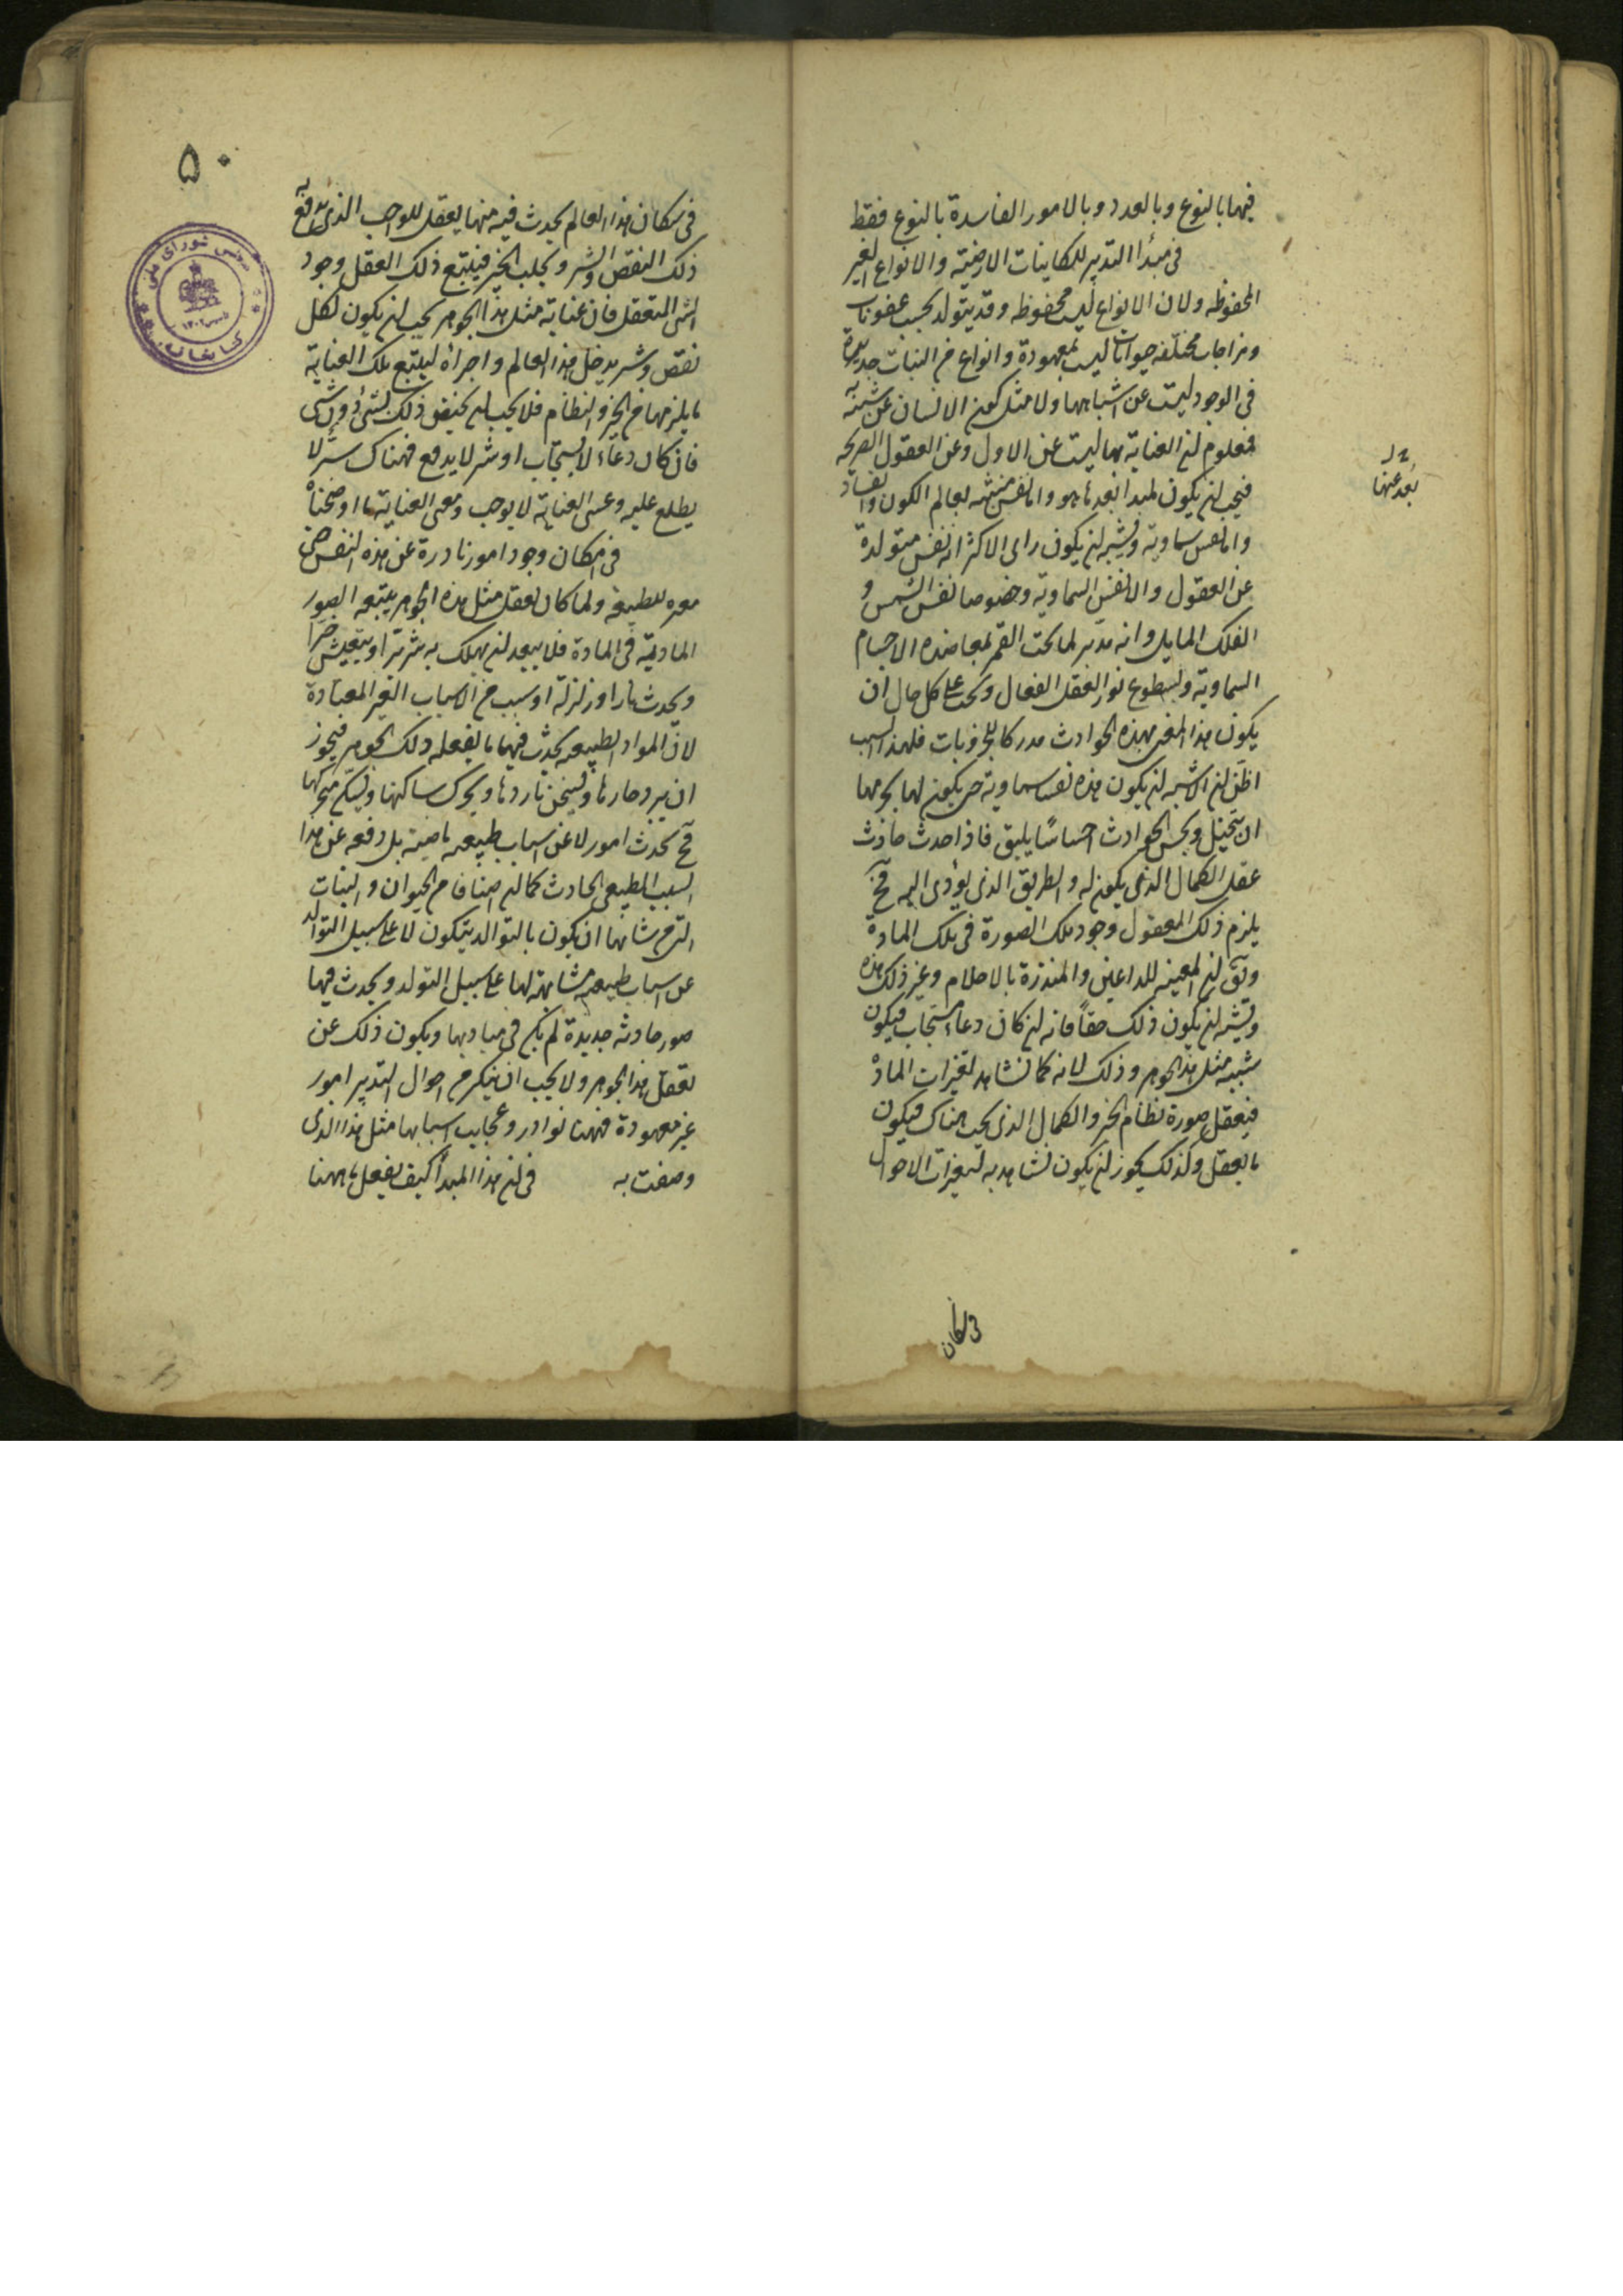 فيهما بالنوع وبالعدد وبالامور الفاسدة بالنوع فقط
فى مبدأ التدبير للكاينات الارضية والانواع الغير
المحفوظه ولان الانواع ليست محفوظه وقد يتولد بحسب عفونات
ومزاجات مختلفه حيوانات ليست بمعهودة وانواع من النبات جديدة
فى الوجود ليست عن اشباهها ولا مثل كون الانسان عن شبيه
فمعلوم ان العناية بها ليست عن الاول وعن العقول الصريحه
فيجب ان يكون لمبدا بعدها هو واما نفس منبثه لعالم الكون والفساد
واما نفس سماوية ويشبه ان يكون راى الاكثر انه نفس متولدة
عن العقول والانفس السماوية وخصوصا نفس الشمس و
الفلك المايل وانه مدبر لما تحت القمر بمعاضده الاجسام
السماوية وبسطوع نور العقل الفعال ويجب على كل حال ان
يكون هذا المعنى بهذه الحوادث مدركا للجزويات فلهذا السبب
اظن ان الاشبه ان يكون هذه نفسا سماوية حتى يكون لها بجرمها
ان تتخيل ويحس الحوادث احساسا يليق فاذا حدث حادث
عقل الكمال الذى يكون له والطريق الذى يؤدى اليه فح
يلزم ذلك المعقول وجود تلك الصورة فى تلك المادة
ويق ان المعينه للداعين والمنذرة بالاحلام وغير ذلك هذه
ويشبه ان يكون ذلك حقاً فانه ان كان دعاء مستجاب فيكون
شبيه مثل هذا الجوهر وذلك لانه كما تشاهد تغيرات المادة
فيعقل صورة نظام الخير والكمال الذى يجب هناك فيكون
ما يعقل ولذلك يجوز ان يكون تشاهد به تغيرات الاحوال
بعد عنها
فى سكان
۵۰
فى سكان هذا العالم يحدث فيه منها يعقل للواجب الذى يدفع به
ذلك النقص والشر ويجلب الخير فيتبع ذلك العقل وجود
الشى المتعقل فان عناية مثل هذا الجوهر يجب ان يكون لكل
نقص وشر يدخل هذا العالم واجزاؤه ليتبع تلك العناية
ما يلزمها من الخير والنظام فلا يجب ان يختص ذلك بشئ دون شى
فان كان دعاء لا يستجاب او شر لا يدفع فهناك سر لا
يطلع عليه وعسى العناية لا يوجب ومعنى العناية ما اوضحناه
فى امكان وجود امور نادرة عن هذه النفس حتى
مغيره للطبيعة ولما كان تعقل مثل هذه الجوهر يتبعه الصور
المادية فى المادة فلا يبعد ان يهلك به شرير او يتعيش خير
ويحدث نار او زلزلة او سبب من الاسباب الغير المعتادة
لان المواد الطبيعه يحدث فيها ما يعقله ذلك الجوهر فيجوز
ان يبرد حارها ويسخن باردها ويحرك ساكنها ويسكن متحركها
فح تحدث امور لا عن اسباب طبيعه ماضية بل دفعه عن هذا
السبب الطبيعى الحادث كما ان اصنافا من الحيوان والنبات
التى من شانها ان يكون بالتوالد يتكون لا على سبيل التوالد
عن اسباب طبيعه مشابهة لها على سبيل التولد ويحدث فيها
صور حادثه جديدة لم يكن فى مباديها ويكون ذلك عن
تعقل هذا الجوهر ولا يجب ان ينكر من احوال التدبير امور
غير معهودة فههنا نوادر وعجايب اسبابها مثل هذا الذى
وصفت به فى ان هذا المبدأ كيف يفعل ما ههنا